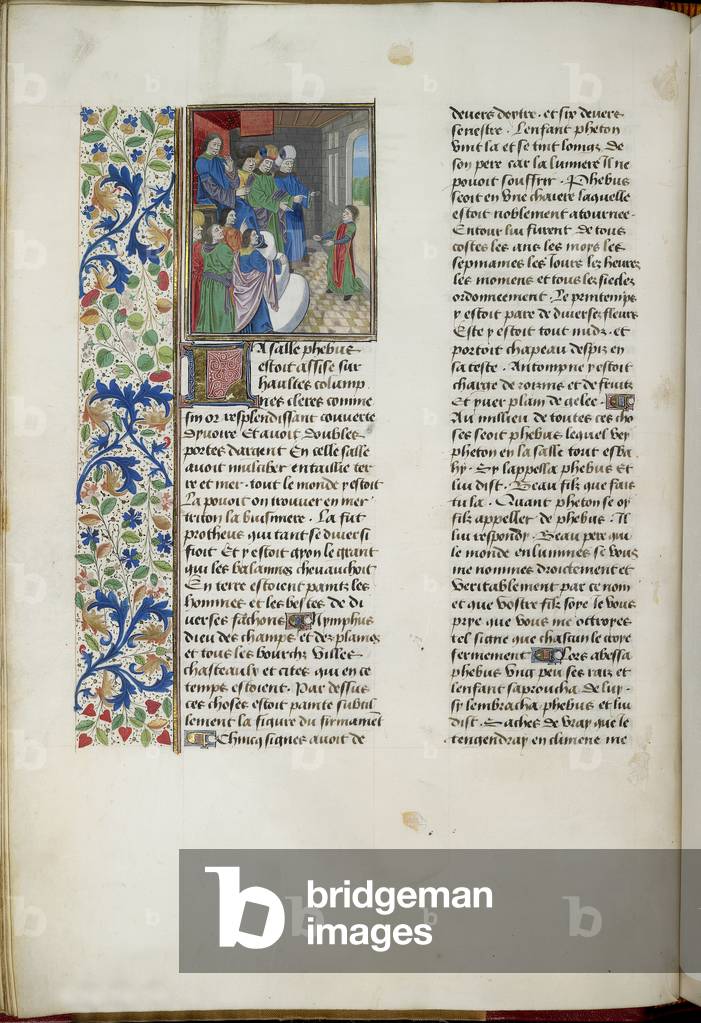 La salle phebus
estoit assise sur
haultes colomp
nes cleres comme
fin or resplendissant couverte
dyuoire Et auoit doubles
portes dargent En celle salle
auoit mulciber entaillie ter
re et mer . tout le monde y estoit
La pouoit on trouuer en mer
triton la buisiniere . La fut
protheus qui tant se diuersi
fioit Et y estoit gyon le geant
qui les balaines cheuauchoit
En terre estoient paintz les
hommes et les bestes de di
uerses fachons Nymphus
dieu des champs et des plaines
et tous les bourchz villes
chasteaulx et cites qui en ce
temps estoient . Par dessus
ces choses estoit painte subtil
lement la figure du firmament
Chincq signes auoit de
deuers dextre . et six deuers
senestre . Lenfant pheton
vint la et se tint loingz de
son pere car la lumiere Il ne
pouoit souffrir . Phebus
seoit en vne chaiere laquelle
estoit noblement atournee .
Entour lui furent de tous
costes les ans les moys les
sepmaines les Jours les heures
les momens et tous les siecles
ordonneement . Le printemps
y estoit pare de diuerses fleurs
Este y estoit tout nudz . et
portoit chapeau despiz en
sa teste . Autompne y estoit
charge de roisins et de fruitz
Et yuer plain de gelee .
Au millieu de toutes ces cho
ses seoit phebus lequel vey
pheton en la salle tout esba
hy . Sy lappella phebus Et
lui dist . Beau filz que fais
tu la . Quant pheton se oy
filz appeller de phebus . Il
lui respondy . Beau pere qui
le monde enlumines se vous
me nommes droictement et
veritablement par ce nom
et que vostre filz soye Je vous
prye que vous me octroyes
tel signe que chascun le croye
fermement Lors abessa
phebus vng peu ses raiz et
lenfant saproucha de luy .
sy lembracha phebus et lui
dist . Saches de vray que Je
tengendray en climene me
bridgeman
images